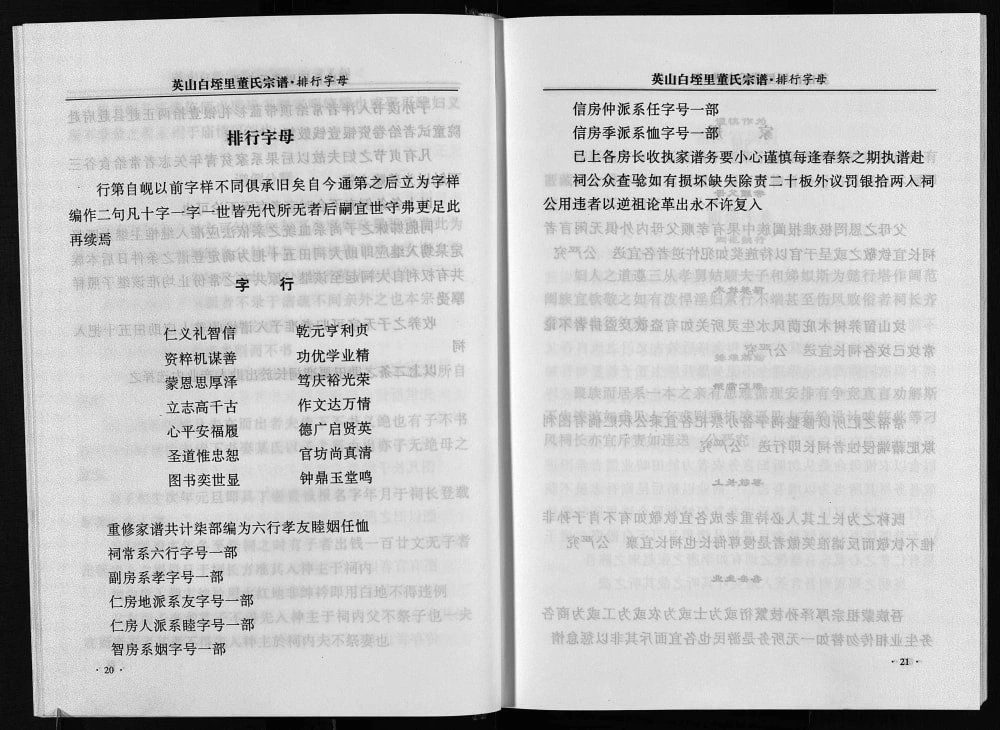 英山白垤里董氏宗谱·排行字母
排行字母
行第自岘以前字样不同俱承旧矣自今通第之后立为字样
编作二句凡十字一字一世皆先代所无者后嗣宜世守弗更足此
再续焉
字 行
仁义礼智信 乾元亨利贞
资粹机谋善 功优学业精
蒙恩思厚泽 笃庆裕光荣
立志高千古 作文达万情
心平安福履 德广启贤英
圣道惟忠恕 官坊尚真清
图书奕世显 钟鼎玉堂鸣
重修家谱共计柒部编为六行孝友睦姻任恤
祠常系六行字号一部
副房系孝字号一部
仁房地派系友字号一部
仁房人派系睦字号一部
智房系姻字号一部
·20·
英山白垤里董氏宗谱·排行字母
信房仲派系任字号一部
信房季派系恤字号一部
已上各房长收执家谱务要小心谨慎每逢春祭之期执谱赴
祠公众查验如有损坏缺失除责二十板外议罚银拾两入祠
公用违者以逆祖论革出永不许复入
·21·